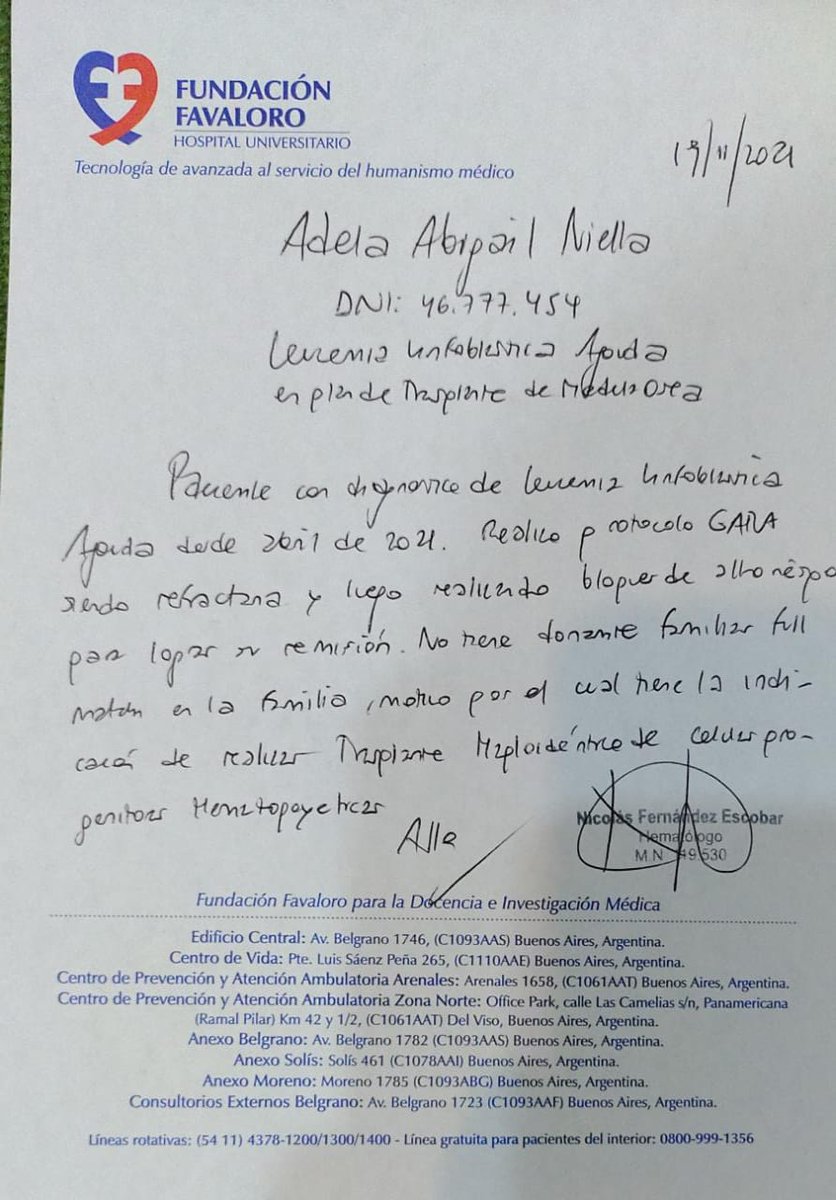 FUNDACIÓN
FAVALORO
HOSPITAL UNIVERSITARIO
Tecnología de avanzada al servicio del humanismo médico
19/11/2021
Adela Abigail Niella
DNI: 46.777.454
Leucemia Linfoblástica Aguda
en plan de Trasplante de Médula Osea
Paciente con diagnostico de leucemia Linfoblastica
Aguda desde abril de 2021. Realizo protocolo GATLA
siendo refractaria y luego realizando bloques de alto riesgo
para lograr su remisión. No tiene donante familiar full
match en la familia, motivo por el cual tiene la indi-
cación de realizar Trasplante Haploidéntico de celulas pro-
genitoras Hematopoyeticas
Nicolás Fernández Escobar
Hematólogo
M.N
Fundación Favaloro para la Docencia e Investigación Médica
Edificio Central: Av. Belgrano 1746, (C1093AAS) Buenos Aires, Argentina.
Centro de Vida: Pte. Luis Sáenz Peña 265, (C1110AAE) Buenos Aires, Argentina.
Centro de Prevención y Atención Ambulatoria Arenales: Arenales 1658, (C1061AAT) Buenos Aires, Argentina.
Centro de Prevención y Atención Ambulatoria Zona Norte: Office Park, calle Las Camelias s/n, Panamericana
(Ramal Pilar) Km 42 y 1/2, (C1061AAT) Del Viso, Buenos Aires, Argentina.
Anexo Belgrano: Av. Belgrano 1782 (C1093AAS) Buenos Aires, Argentina.
Anexo Solís: Solís 461 (C1078AAI) Buenos Aires, Argentina.
Anexo Moreno: Moreno 1785 (C1093ABG) Buenos Aires, Argentina.
Consultorios Externos Belgrano: Av. Belgrano 1723 (C1093AAF) Buenos Aires, Argentina.
Líneas rotativas: (54 11) 4378-1200/1300/1400 - Línea gratuita para pacientes del interior: 0800-999-1356